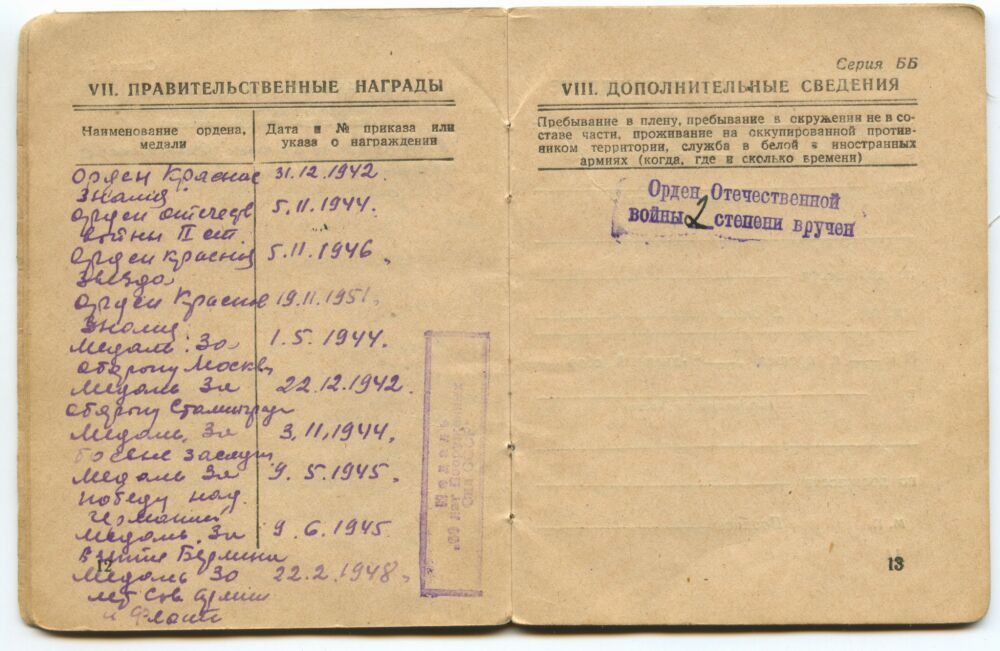 VII. ПРАВИТЕЛЬСТВЕННЫЕ НАГРАДЫ
Наименование ордена, медали
Дата и № приказа или указа о награждении
Орден Красное 31.12.1942.
Знамя
Орден отечеств 5.11.1944.
войны II ст.
Орден Красная 5.11.1946.
Звезда
Орден Красное 19.11.1951.
Знамя
Медаль За 1.5.1944.
оборону Москвы
Медаль За 22.12.1942.
оборону Сталинграда
Медаль За 3.11.1944.
боевые заслуги
Медаль За 9.5.1945.
победу над
Германией
Медаль За 9.6.1945.
взятие Берлина
12
Медаль 30 22.2.1948.
лет Сов Армии
и Флота
Медаль
Серия ББ
VIII. ДОПОЛНИТЕЛЬНЫЕ СВЕДЕНИЯ
Пребывание в плену, пребывание в окружении не в со-
ставе части, проживание на оккупированной против-
ником территории, служба в белой и иностранных
армиях (когда, где и сколько времени)
Орден Отечественной
войны 2 степени вручен
13